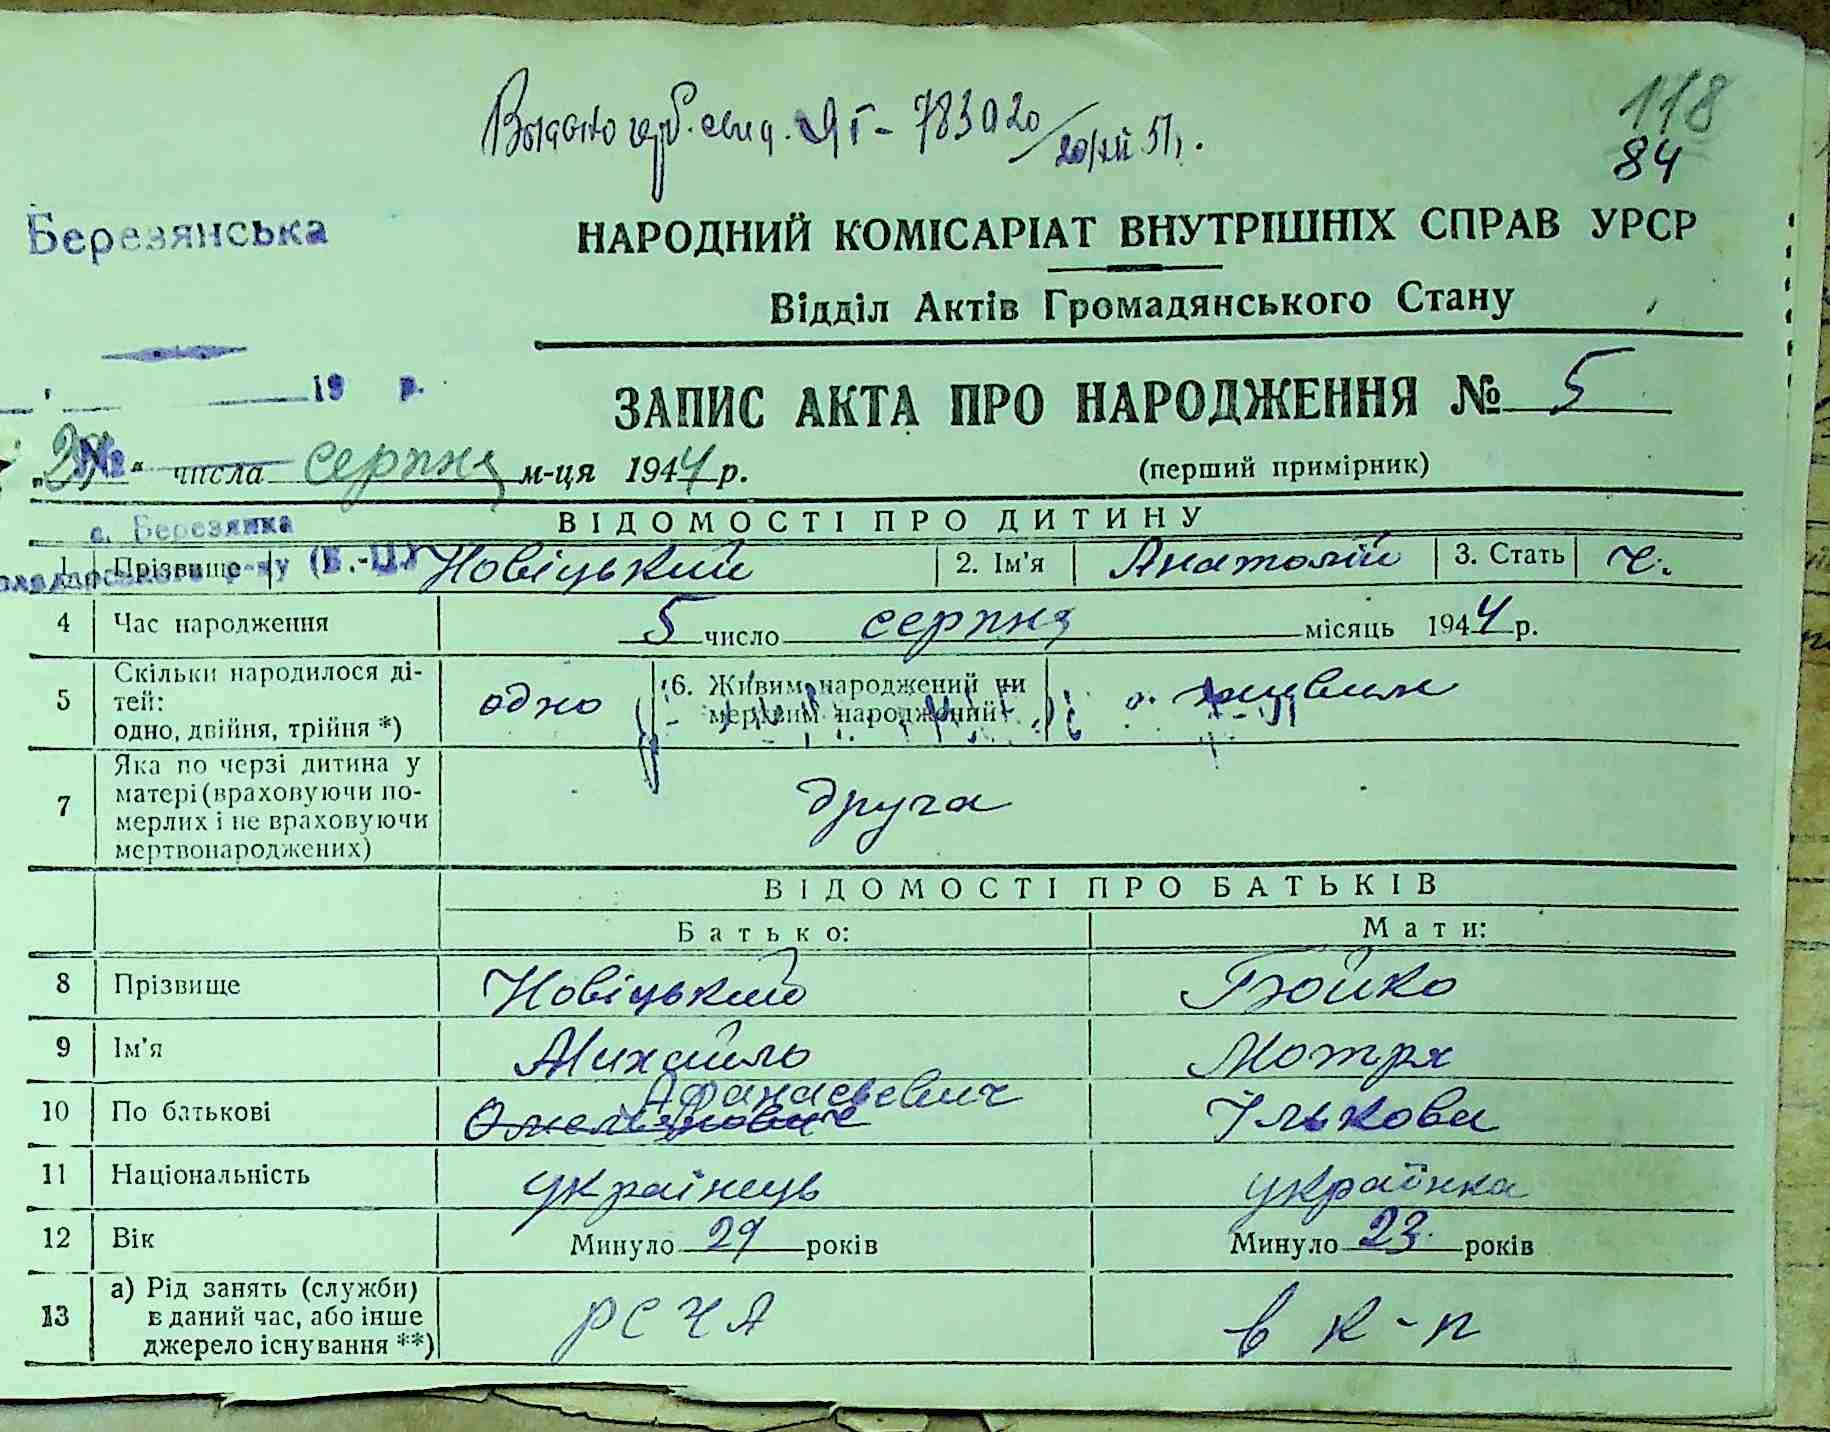 Видано герб. свид. ЯГ - 783020 / 20/XII 51 г.
118
84
Березянська
НАРОДНИЙ КОМІСАРІАТ ВНУТРІШНІХ СПРАВ УРСР
Відділ Актів Громадянського Стану
19 р.
ЗАПИС АКТА ПРО НАРОДЖЕННЯ № 5
№
числа серпня м-ця 1944 р. (перший примірник)
с. Березянка
ВІДОМОСТІ ПРО ДИТИНУ
1 Прізвище Новіцький 2. Ім'я Анатолій 3. Стать ч.
4 Час народження 5 число серпня місяць 1944 р.
5 Скільки народилося ді-
тей:
одно, двійня, трійня *) одно 6. Живим народжений чи
мертвим народжений живим
7 Яка по черзі дитина у
матері (враховуючи по-
мерлих і не враховуючи
мертвонароджених) друга
ВІДОМОСТІ ПРО БАТЬКІВ
Батько: Мати:
8 Прізвище Новіцький Бойко
9 Ім'я Михайло Мотря
Афанасьевич
10 По батькові Омельянович Ількова
11 Національність українець українка
12 Вік Минуло 29 років Минуло 23 років
13 а) Рід занять (служби)
в даний час, або інше
джерело існування **) РСЧА в к-п